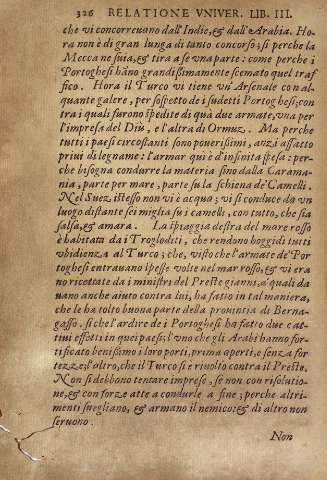 326 RELATIONE VNIVER. LIB. III.
che vi concorreuano dall'Indie, & dall'Arabia. Ho-
ra non è di gran lunga di tanto concorso; si perche la
Mecca ne suia, & tira a se vna parte: come perche i
Portoghesi hāno grandissimamente scemato quel traf
fico. Hora il Turco vi tiene vn'Arsenale con al-
quante galere, per sospetto de i sudetti Portoghesi; con
tra i quali furono spedite di quà due armate, vna per
l'impresa del Diù, e l'altra di Ormuz. Ma perche
tutti i paesi circostanti sono pouerissimi, anzi affatto
priui di legname: l'armar qui è d'infinita spesa: per-
che bisogna condurre la materia sino dalla Carama-
nia, parte per mare, parte su la schiena de' Camelli.
Nel Suez istesso non vi è acqua; vi si conduce da vn
luogo distante sei miglia su i camelli, con tutto, che sia
salsa, & amara. La spiaggia destra del mare rosso
è habitata da i Trogloditi, che rendono hoggidì tutti
vbidienza al Turco; che, visto che l'armate de' Por
toghesi entrauano spesse volte nel mar rosso, & vi era
no ricettate da i ministri del Preste gianni, a' quali da
uano anche aiuto contra lui, ha fatto in tal maniera,
che le ha tolto buona parte della prouintia di Berna-
gasso. si che l'ardire de i Portoghesi ha fatto due cat-
tiui effetti in quei paesi; l'vno che gli Arabi hanno for-
tificato benissimo i loro porti, prima aperti, e senza for
tezze; l'altro, che il Turco si è riuolto contra il Preste.
Non si debbono tentare imprese, se non con risolutio-
ne, & con forze atte a condurle a fine; perche altri-
menti suegliano, & armano il nemico: & di altro non
seruono.
Non